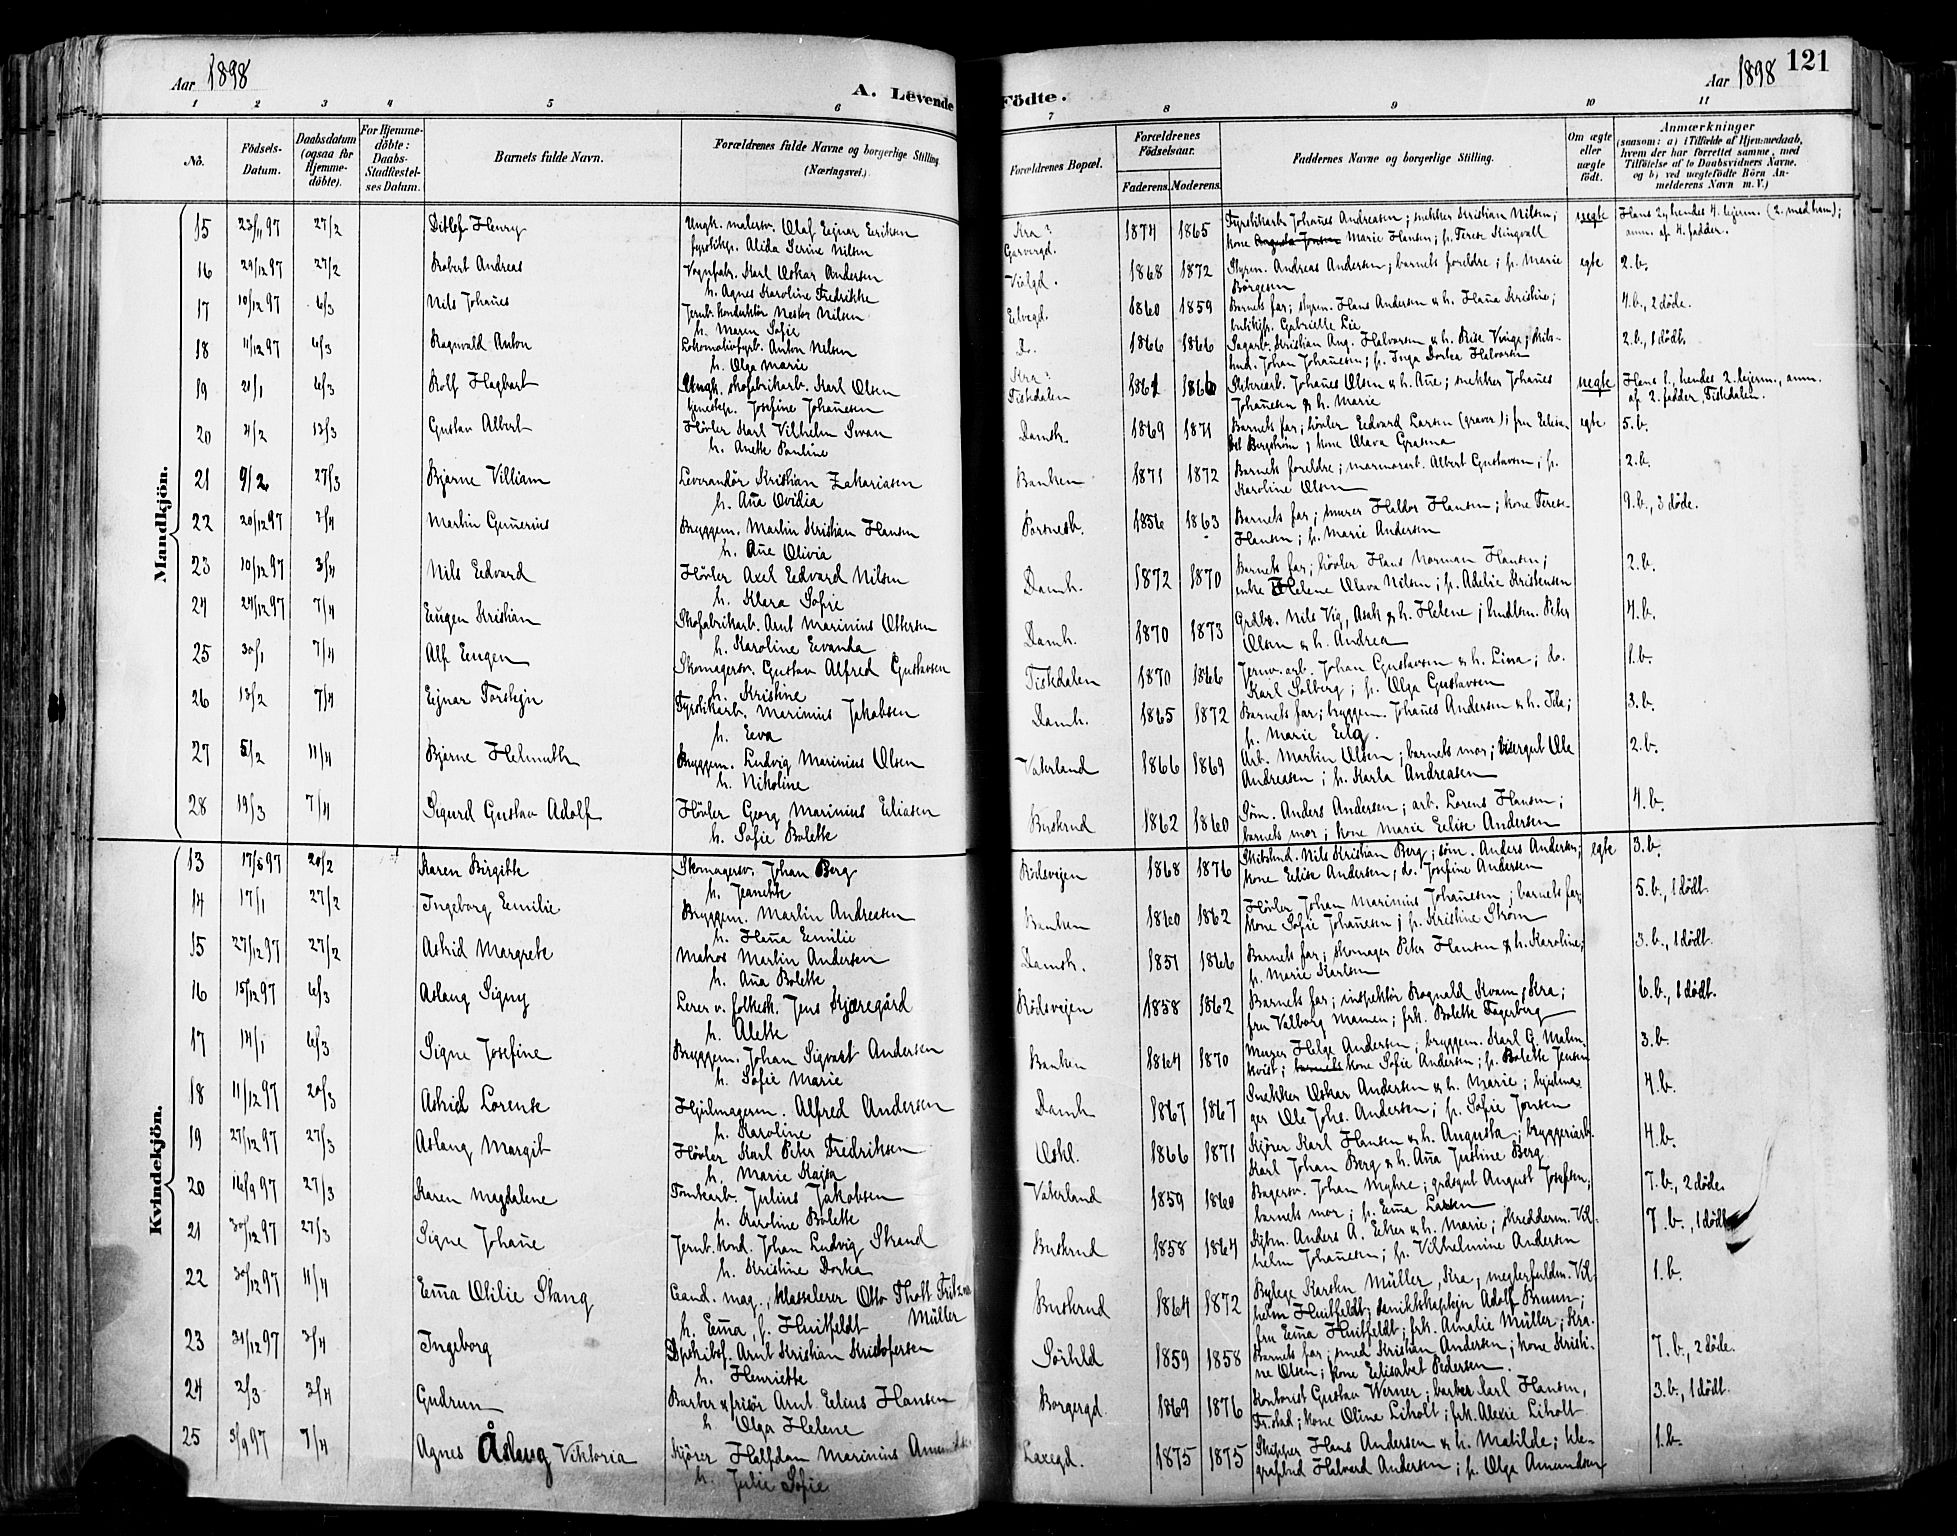 Aar 1898
A. Levende Födte.
Aar 1898 121
1 2 3 4 5 6 7 8 9 10 11
No. Födsels-Datum. Daabsdatum (ogsaa for Hjemmedöbte). For Hjemmedöbte: Daabs-Stadfæstelses Datum. Barnets fulde Navn. Forældrenes fulde Navne og borgerlige Stilling (Næringsvei). Forældrenes Bopæl. Forældrenes Födselsaar. Faderens. Moderens. Faddernes Navne og borgerlige Stilling. Om ægte eller uægte födt. Anmærkninger (saasom: a) i Tilfælde af Hjemmedaab, hvem der har forrettet samme, med Tilföielse af to Daabsvidners Navne, og b) ved uægtefödte Börn Anmelderens Navn m. V.)
Mandkjön.
15 23/11 97 27/2 Ditlef Henry Ungk. matersv. Olaf Ejnar Eriksen 1874 1865 Fyrstikarb. Johañes Andreasen; snekker Kristian Nilsen; uegte Hans 2, hendes 4. lejerm. (2. med ham);
fyrstikp. Alida Serine Nilsen Garverigd. kone Marie Hansen; p. Terese Ringvall anm. af 4. fadder.
16 29/12 97 27/2 Robert Andreas Vognfabr. Karl Oskar Andersen Violgd. 1868 1872 Styrm. Andreas Andersen; barnets foreldre; p. Marie egte 2. b.
h. Agnes Karoline Fredrikke Börgesen
17 10/12 97 6/3 Nils Johañes Jernb. konduktör Nestor Nilsen Elvegd. 1860 1859 Barnets far; styrm. Hans Andersen & h. Haña Kristine; 4. b., 2 döde.
h. Maren Sofie butikjp. Gabrielle Lie
18 11/12 97 6/3 Ragnvald Anton Lokomotivfyrb. Anton Nilsen D. 1866 1866 Sagarb. Kristian Aug. Halvorsen & h. Rise Vinge; skibs- 2. b., 1 dödt.
h. Olga Marie tmd. Johan Johañesen; p. Inga Dorkea Halvorsen
19 21/1 6/3 Rolf Hagbart Ungk. skofabrikarb. Karl Olsen Fiskdalen 1861 1866 Johañes Olsen & h. Añe; snekker Johañes uegte Hans 1., hendes 2. lejerm., anm.
tjenestep. Josefine Johañesen Johañesen & h. Marie af 2. fadder, Fiskdalen.
20 4/2 13/3 Gustav Albert Hövler Karl Vilhelm Svan Damh. 1869 1871 Barnets far; hövler Edvard Larsen (graver); fru Elisa- egte 5. b.
h. Anette Pauline bet Bergström; kone Olava
21 9/2 27/3 Bjarne Villiam Leverandör Kristian Zakariasen Banken 1871 1872 Barnets foreldre; marmorarb. Albert Gustavsen; p. 2. b.
h. Aña Ovidia Karoline Olsen
22 20/12 97 3/4 Martin Gunerius Bryggem. Martin Kristian Hansen Porsnesb. 1856 1863 Barnets far; murer Haldor Hansen; kone Terese 9. b., 3 döde.
h. Añe Olivia Hansen; p. Marie Andersen
23 10/12 97 3/4 Nils Edvard Hövler Axel Edvard Nilsen Damh. 1872 1870 Barnets far; hövler Hans Norman Hansen; 2. b.
h. Klara Sofie enke Helene Olava Nilsen; p. Adelie Kristensen
24 24/12 97 7/4 Eugen Kristian Skofabrikarb. Arnt Marinius Ottersen Damh. 1870 1873 Grdbr. Nils Vig, Asak & h. Helene; hndlsm. Peter 4. b.
h. Karoline Evanda Olsen & h. Andrea
25 30/1 7/4 Alf Eugen Skomagersv. Gustav Alfred Gustavsen Fiskdalen 1870 1866 Jernv. arb. Johan Gustavsen & h. Lina; do. 1. b.
h. Kristine Karl Solberg; p. Olga Gustavsen
26 13/2 7/4 Ejnar Torstejn Fyrstikarb. Marinius Jakobsen Damh. 1865 1872 Barnets far; bryggem. Johañes Andersen & h. Ida; 3. b.
h. Eva p. Marie Eilg.
27 5/2 11/4 Bjarne Helmuth Bryggem. Ludvig Marinius Olsen Vaterland 1866 1869 Arb. Martin Olsen; barnets mor; visergut Ole 2. b.
h. Nikoline Andreasen; p. Karla Andreasen
28 19/3 7/4 Sigurd Gustav Adolf Hövler Georg Marinius Eliasen Buskrud 1862 1860 Söm. Anders Andersen; arb. Lorens Hansen; 4. b.
h. Sofie Bolette barnets mor; kone Marie Elise Andersen
Kvindekjön.
13 17/5 97 20/2 Karen Birgitte Skomagersv. Johan Berg Rödsvejen 1868 1876 Skibstmd. Nils Kristian Berg; söm. Anders Andersen; egte 3. b.
h. Jeanette kone Elise Andersen; do. Josefine Andersen
14 17/1 27/2 Ingeborg Emilie Bryggem. Martin Andreasen Banken 1860 1862 Hövler Johan Marinius Johañesen; barnets far; 5. b., 1 dödt.
h. Haña Emilie kone Sofie Johañesen; p. Kristine Ström
15 27/12 97 27/2 Astrid Margrete Matros Martin Andersen Damh. 1851 1866 Barnets far; skomager Peter Hansen & h. Karoline; 3. b., 1 dödt.
h. Aña Bolette p. Marie Karlsen
16 15/12 97 6/3 Aslaug Signy Lerer v. folkesk. Jens Kjæregård Rödsvejen 1858 1862 Barnets far; inspektör Ragnald Kvam, Kra; 6. b., 1 dödt.
h. Alette fru Valborg Mamen; frk. Bolette Fagerberg
17 14/1 6/3 Signe Josefine Bryggem. Johan Sigvart Andersen Banken 1864 1870 Murer Helge Andersen; bryggem. Karl G. Malm- 3. b.
h. Sofie Marie kvist; kone Sofie Andersen; p. Bolette Jensen
18 11/12 97 20/3 Astrid Lorense Hjulmagerm. Alfred Andersen Damh 1867 1867 Snekker Oskar Andersen & h. Marie; hjulma- 4. b.
h. Karoline ger Ole Johs. Andersen; p. Sofie Jonsen
19 27/12 97 27/3 Aslaug Margit Hövler Karl Peter Fredriksen Oskl. 1866 1871 Kjörer Karl Hansen & h. Augusta; bryggeriarb. 4. b.
h. Marie Kajsa Karl Johan Berg & h. Aña Justine Berg
20 16/9 97 27/3 Karen Magdalene Tomtearb. Julius Jakobsen Vaterland 1859 1860 Bagersv. Johan Myhre; grdsgut August Josefsen; 7. b., 2 döde.
h. Karoline Bolette barnets mor; p. Ema Larsen
21 30/12 97 27/3 Signe Johañe Jernb. Kond. Johan Ludvig Strand Buskrud 1858 1864 Stjbm. Anders A. Eiker & h. Marie; skredderm. Vil- 7. b., 1 dödt.
h. Kristine Dorkea helm Johañesen; p. Vilhelmine Andersen
22 30/12 97 11/4 Ema Otilie Stang Cand. mag., klasselerer Otto Thott Fritzner Müller Buskrud 1864 1872 Bylege Karsten Müller, Kra; meglerfuldm. Vil- 1. b.
h. Ema, f. Huitfeldt helm Huitfeldt; Adolf Bruun;
fru Ema Huitfeldt; frk. Amalie Müller, Kra.
23 31/12 97 3/4 Ingeborg Arnt Kristian Kristofersen Sörhld 1859 1858 Barnets far; smed Kristian Andersen; kone Kristi- 7. b., 2 döde.
h. Henriette ne Olsen; kone Elisabet Pedersen.
24 2/3 3/4 Gudrun Barber & frisör Arnt Elius Hansen Borgergd. 1869 1876 Kontorist Gustav Werner; barber Karl Hansen, 3. b., 1 dödt.
h. Olga Helene Fr.stad; kone Oline Liholt; frk. Alexie Liholt
25 3/9 97 7/4 Agnes Åslaug Viktoria Kjörer Halfdan Marinius Laxegd. 1875 1875 Skipper Hans Andersen & h. Matilde; tele- 1. b.
h. Julie Sofie grafbud Halvard Andersen; p. Olga Amundsen